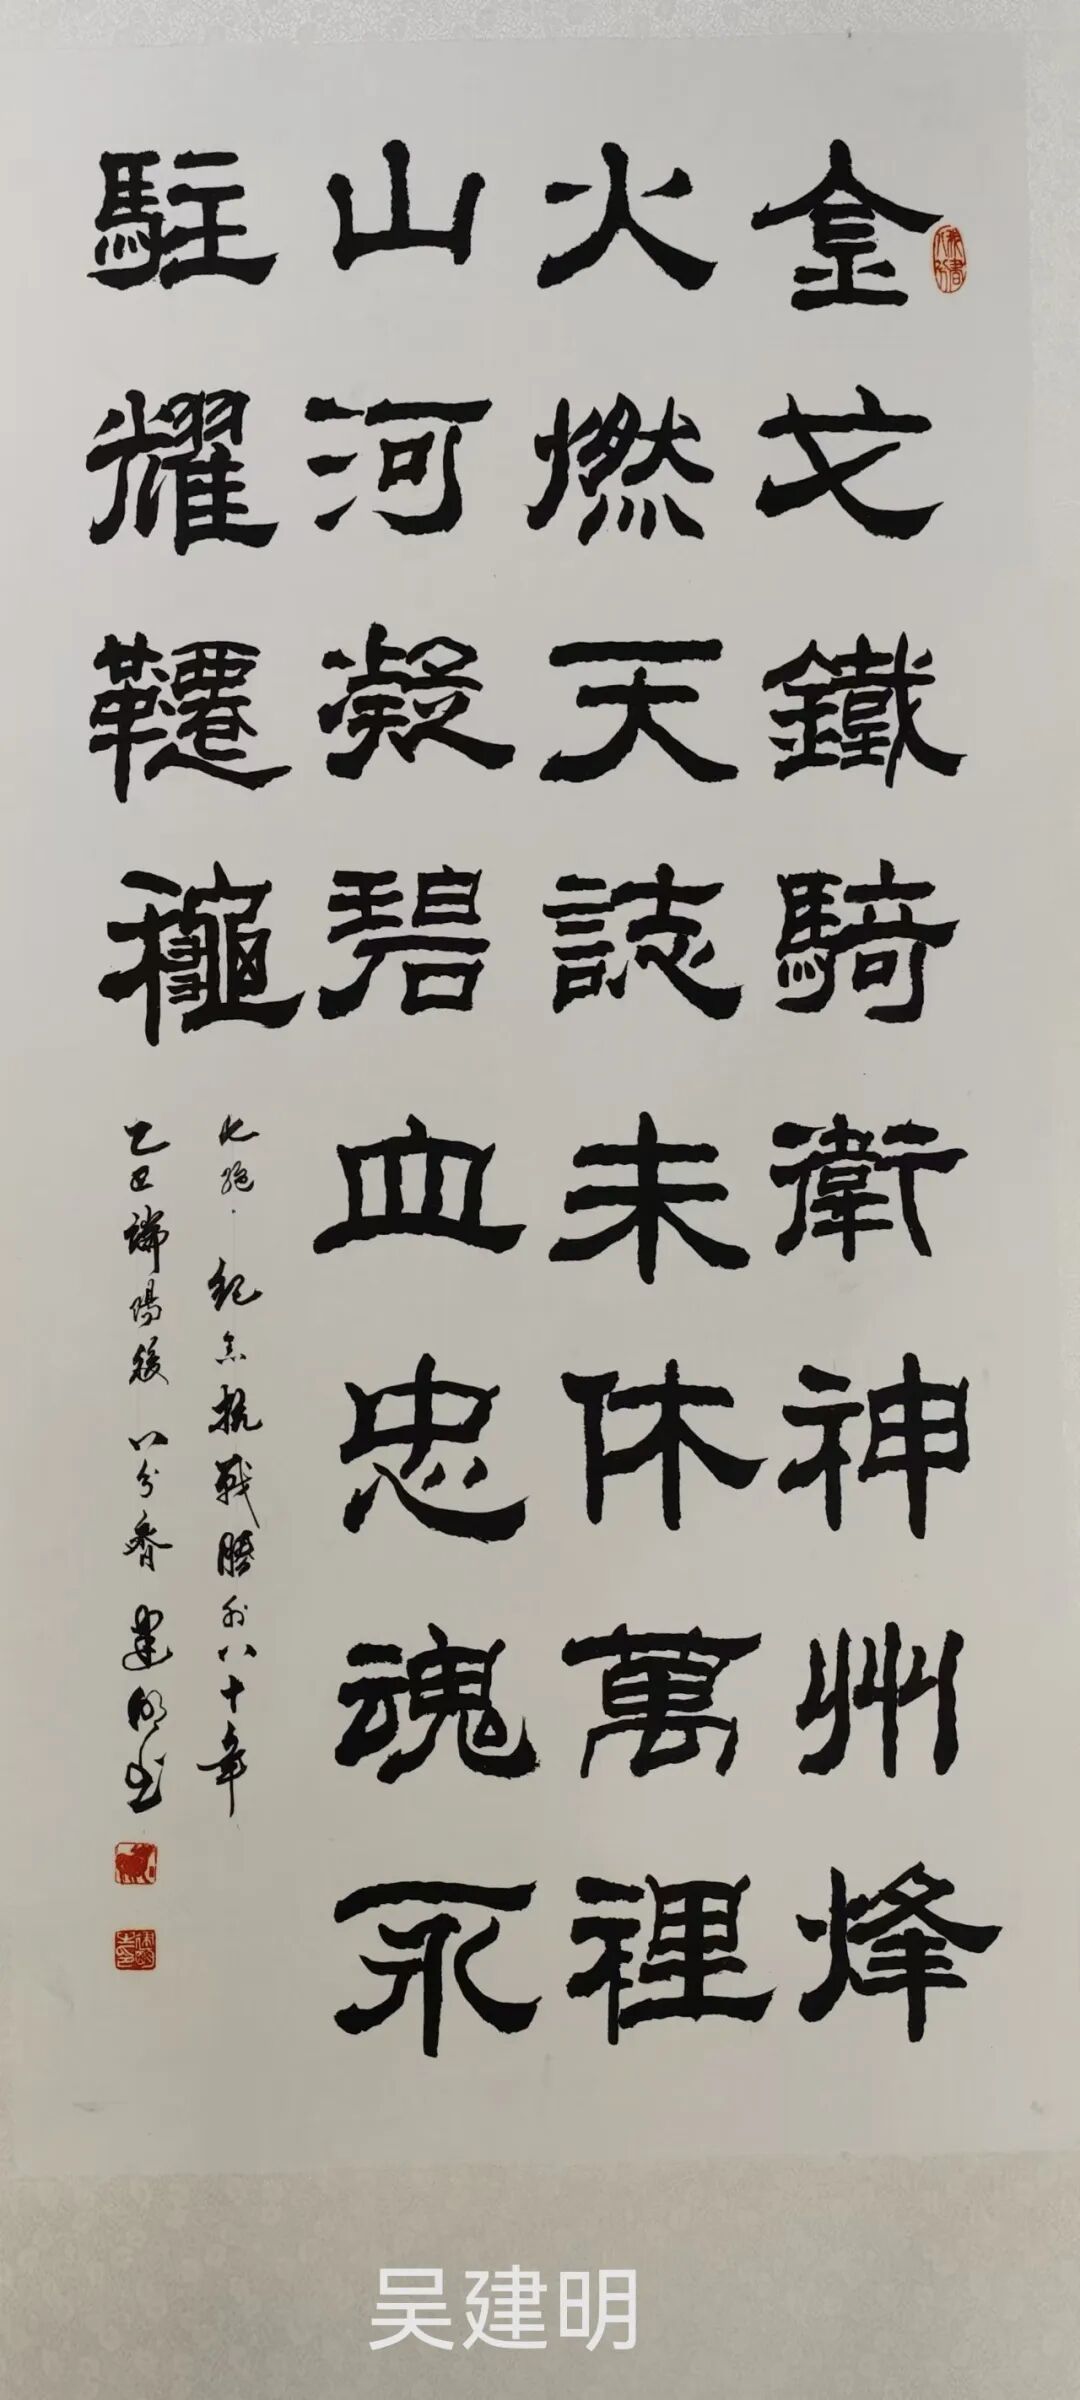 金戈鐵騎衛神州烽
火燃天誌未休萬裡
山河凝碧血忠魂永
駐耀韆龝
七绝·紀念抗戰勝利八十年
乙巳端陽後八分齋建明书
吴建明